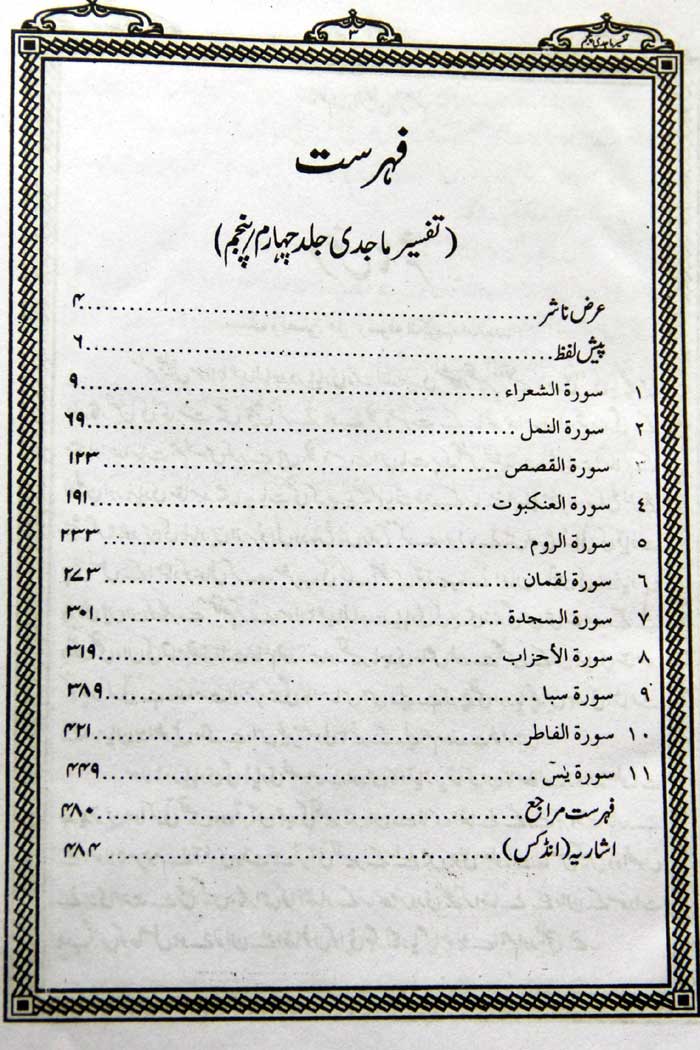 ۳
تفسیر ماجدی پنجم
فہرست
(تفسیر ماجدی جلد چہارم/پنجم)
عرض ناشر ۴
پیش لفظ ۶
۱ سورة الشعراء ۹
۲ سورة النمل ۶۹
۳ سورة القصص ۱۲۳
٤ سورة العنکبوت ۱۹۱
۵ سورة الروم ۲۳۳
۶ سورة لقمان ۲۷۳
۷ سورة السجدة ۳۰۱
۸ سورة الأحزاب ۳۱۹
۹ سورة سبا ۳۸۹
۱۰ سورة الفاطر ۴۲۱
۱۱ سورة یٰسٓ ۴۴۹
فہرست مراجع ۴۸۰
اشاریہ (انڈکس) ۴۸۴